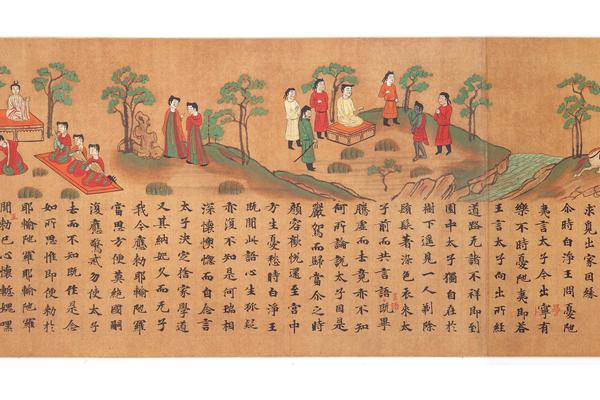 求覓出家因緣
尒時白淨王問憂陁
夷言太子今出寧有
樂不時憂陁夷即荅
王言太子向出所經
道路无諸不祥即到
園中太子獨自在於
樹下遙見一人剃除
鬚髮著染色衣來太
子前而共言語既畢
騰虛而去竟亦不知
何所論說太子因是
嚴駕而歸當尒之時
顏容歡悅還至宮中
方生憂愁時白淨王
既聞此語心生狐疑
亦復不知是何瑞相
深懷懊惱而自念言
太子決定捨家學道
又其納妃久而无子
我今應勑耶輸陁羅
當思方便莫絕國嗣
復應警戒勿使太子
去而不知既作是念
如所思惟即便勑於
耶輸陁羅耶輸陁羅
聞勑已心懷慙愧嘿